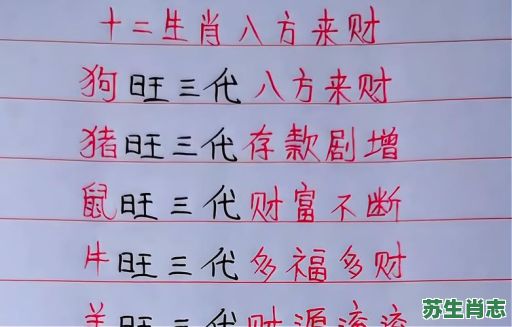 十二生肖八方来财
狗旺三代八方来财
猪旺三代存款剧增
鼠旺三代财富不断
牛旺三代多福多财
羊旺三代财源滚滚
苏生肖志